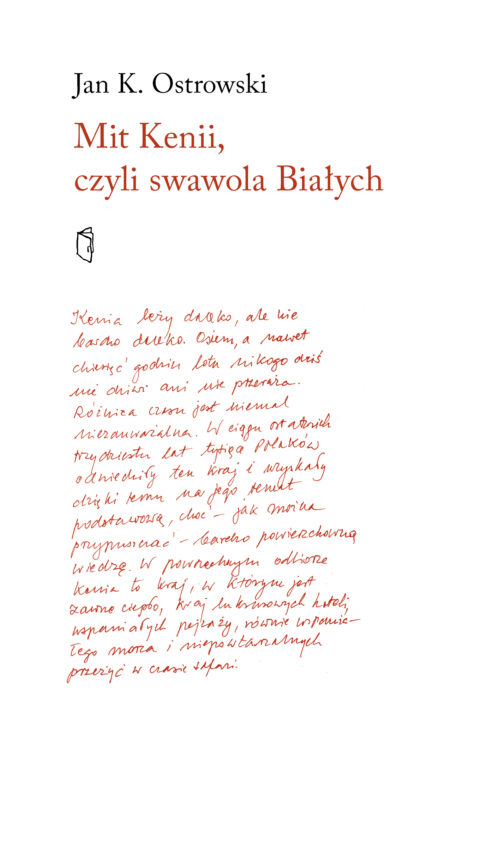 Jan K. Ostrowski
Mit Kenii,
czyli swawola Białych
Kenia leży daleko, ale nie
bardzo daleko. Osiem, a nawet
dziesięć godzin lotu nikogo dziś
nie dziwi ani nie przeraża.
Różnica czasu jest niemal
niezauważalna. W ciągu ostatnich
trzydziestu lat tysiące Polaków
odwiedziły ten kraj i uzyskały
dzięki temu na jego temat
podstawową, choć – jak można
przypuszczać – bardzo powierzchowną
wiedzę. W powszechnym odbiorze
Kenia to kraj, w którym jest
zawsze ciepło, kraj luksusowych hoteli,
wspaniałych pejzaży, równie wspania-
łego morza i niepowtarzalnych
przeżyć w czasie safari.